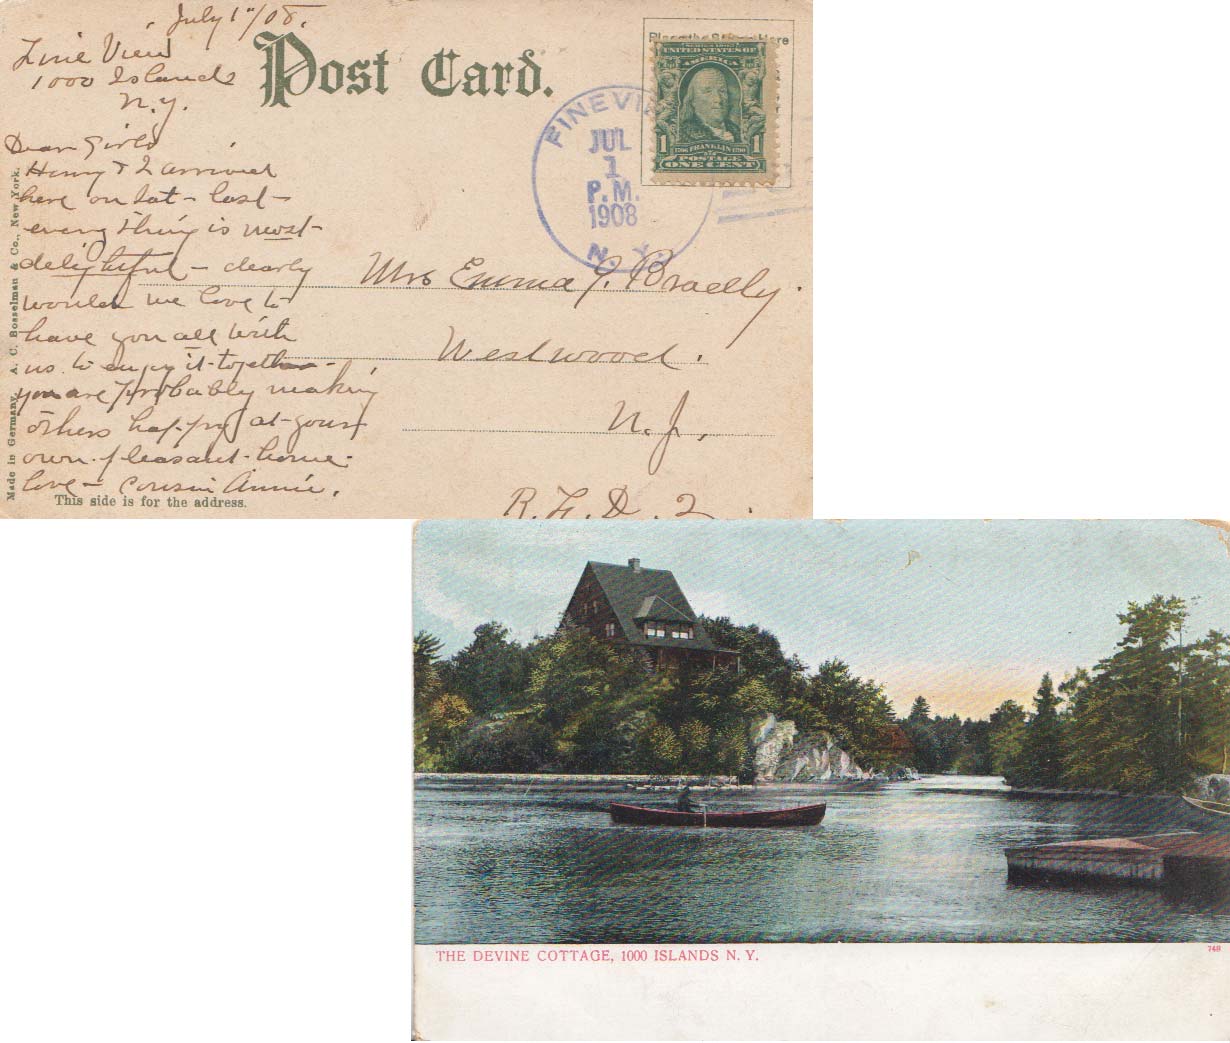 July 1"/08.
Fine View
1000 Islands
N.Y.
Post Card.
Place the Stamp Here
SERIES 1902
UNITED STATES OF
AMERICA
1 1706 FRANKLIN 1790 1
POSTAGE
ONE CENT
FINEVIE
JUL
1
P.M.
1908
N. Y.
Dear Girls
Henry & I arrived
here on Sat - last -
everything is most -
delightful - dearly
would we love to
have you all with
us to enjoy it together -
you are probably making
others happy at your
own pleasant home.
love - Cousin Annie.
Mrs Emma J. Bradly.
Westwood.
N.J.
R.F.D. 2.
This side is for the address.
Made in Germany. A. C. Bosselman & Co., New York.
THE DEVINE COTTAGE, 1000 ISLANDS N. Y.
748